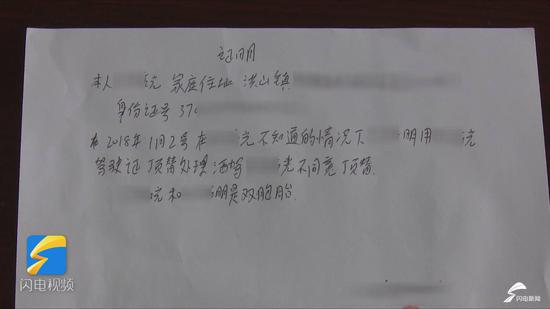 证明
本人 家庭住址 洪山镇
身份证号 37
在2018年1月2号在 不知道的情况下 用
驾驶证 顶替处理酒驾 不同意顶替.
和 是双胞胎.
闪电视频
闪电新闻